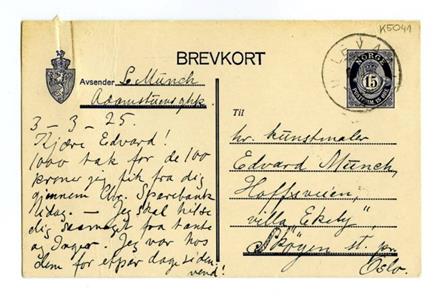 K5041
BREVKORT
NORGE
15
Avsender L Munch
3-3-25.
Kjære Edvard!
1000 tak for de 100
kroner jeg fik fra dig
gjennem Sparebank
idag. — Jeg skal hilse
dig fra tante
og Inger. Jeg var hos
dem for et par dage siden
vend!
Til
hr. kunstmaler
Edvard Munch,
Hoffsveien,
villa Ekely"
Skøyen st. pr
Oslo.